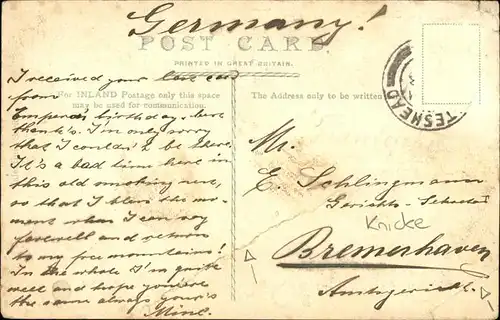 Germany!
POST CARD.
PRINTED IN GREAT BRITAIN.
For INLAND Postage only this space
may be used for communication.
The Address only to be written
TESHEAD
I received your last card
from
Emperor's birthday, here
thank's. I'm only sorry
that I couldn't be there.
It's a bad time here in
this old smoking nest,
so that I bless the mo-
ment when I can say
farewell and return
to my free mountains!
In the whole I'm quite
well and hope you're
the same always your's
Mr.
E. Schlingmann
Gerichts-
Knicke
Bremerhaven
Amtsgericht.